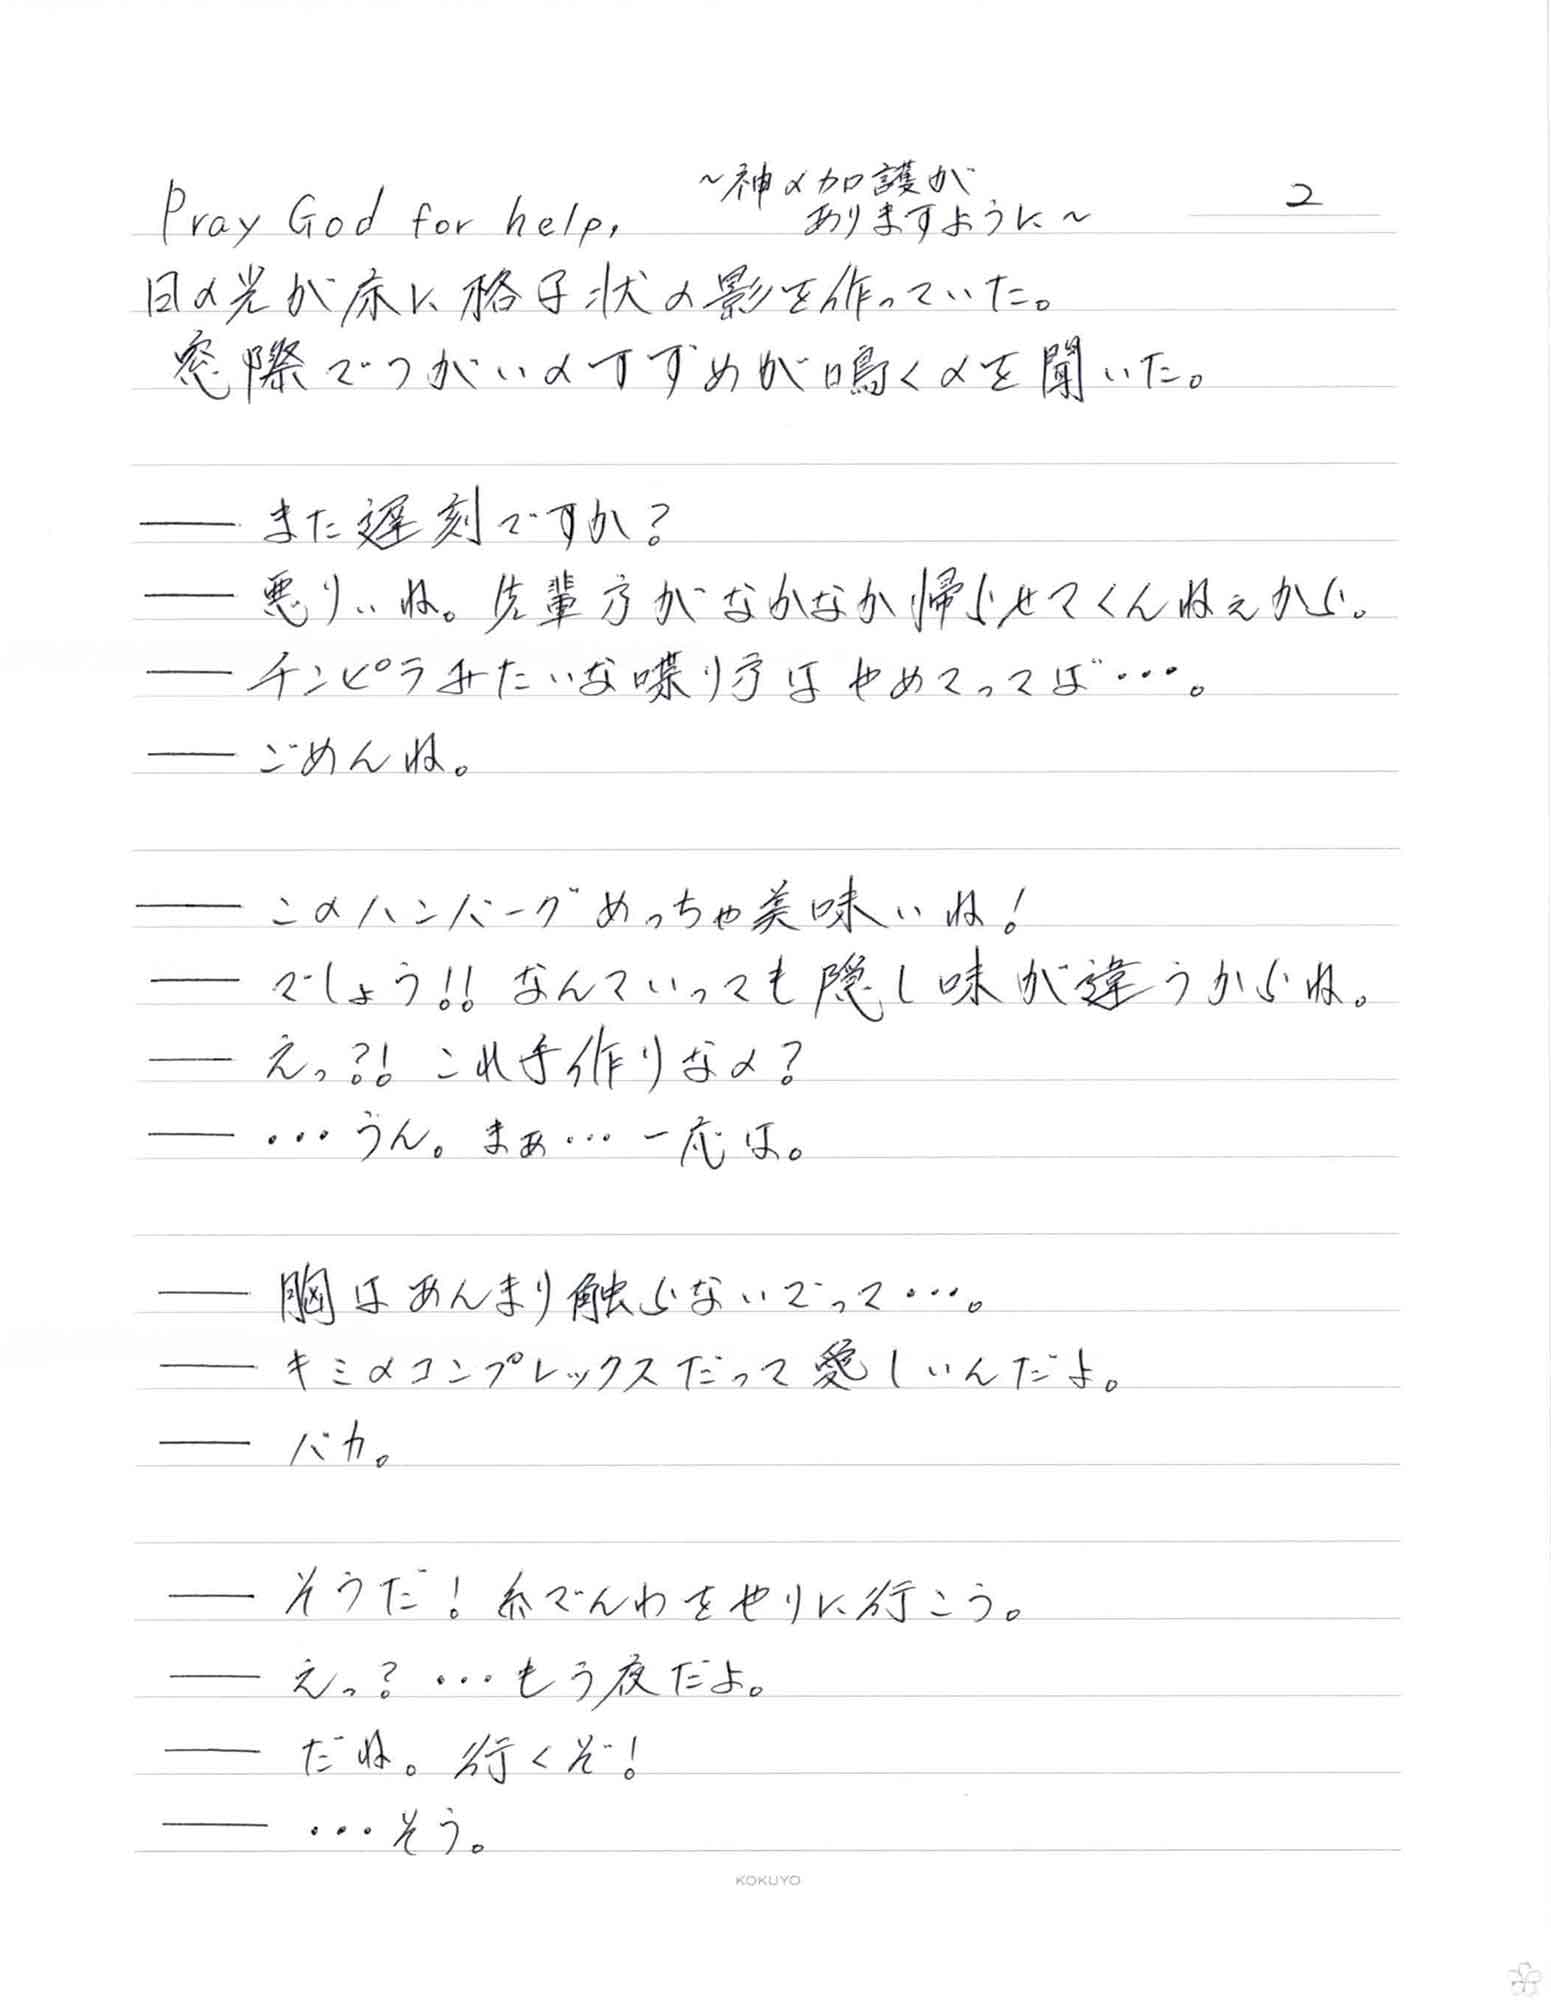 Pray God for help,
～神の加護が
ありますように～
2
日の光が床に格子状の影を作っていた。
窓際でつがいのすずめが鳴くのを聞いた。
―― また遅刻ですか？
―― 悪りぃね。先輩方がなかなか帰らせてくんねぇから。
―― チンピラみたいな喋り方はやめてってば…。
―― ごめんね。
―― このハンバーグめっちゃ美味いね！
―― でしょう!! なんていっても隠し味が違うからね。
―― えっ?! これ手作りなの？
―― …うん。まぁ…一応は。
―― 胸はあんまり触らないでって…。
―― キミのコンプレックスだって愛しいんだよ。
―― バカ。
―― そうだ！糸でんわをやりに行こう。
―― えっ？…もう夜だよ。
―― だね。行くぞ！
―― …そう。
KOKUYO